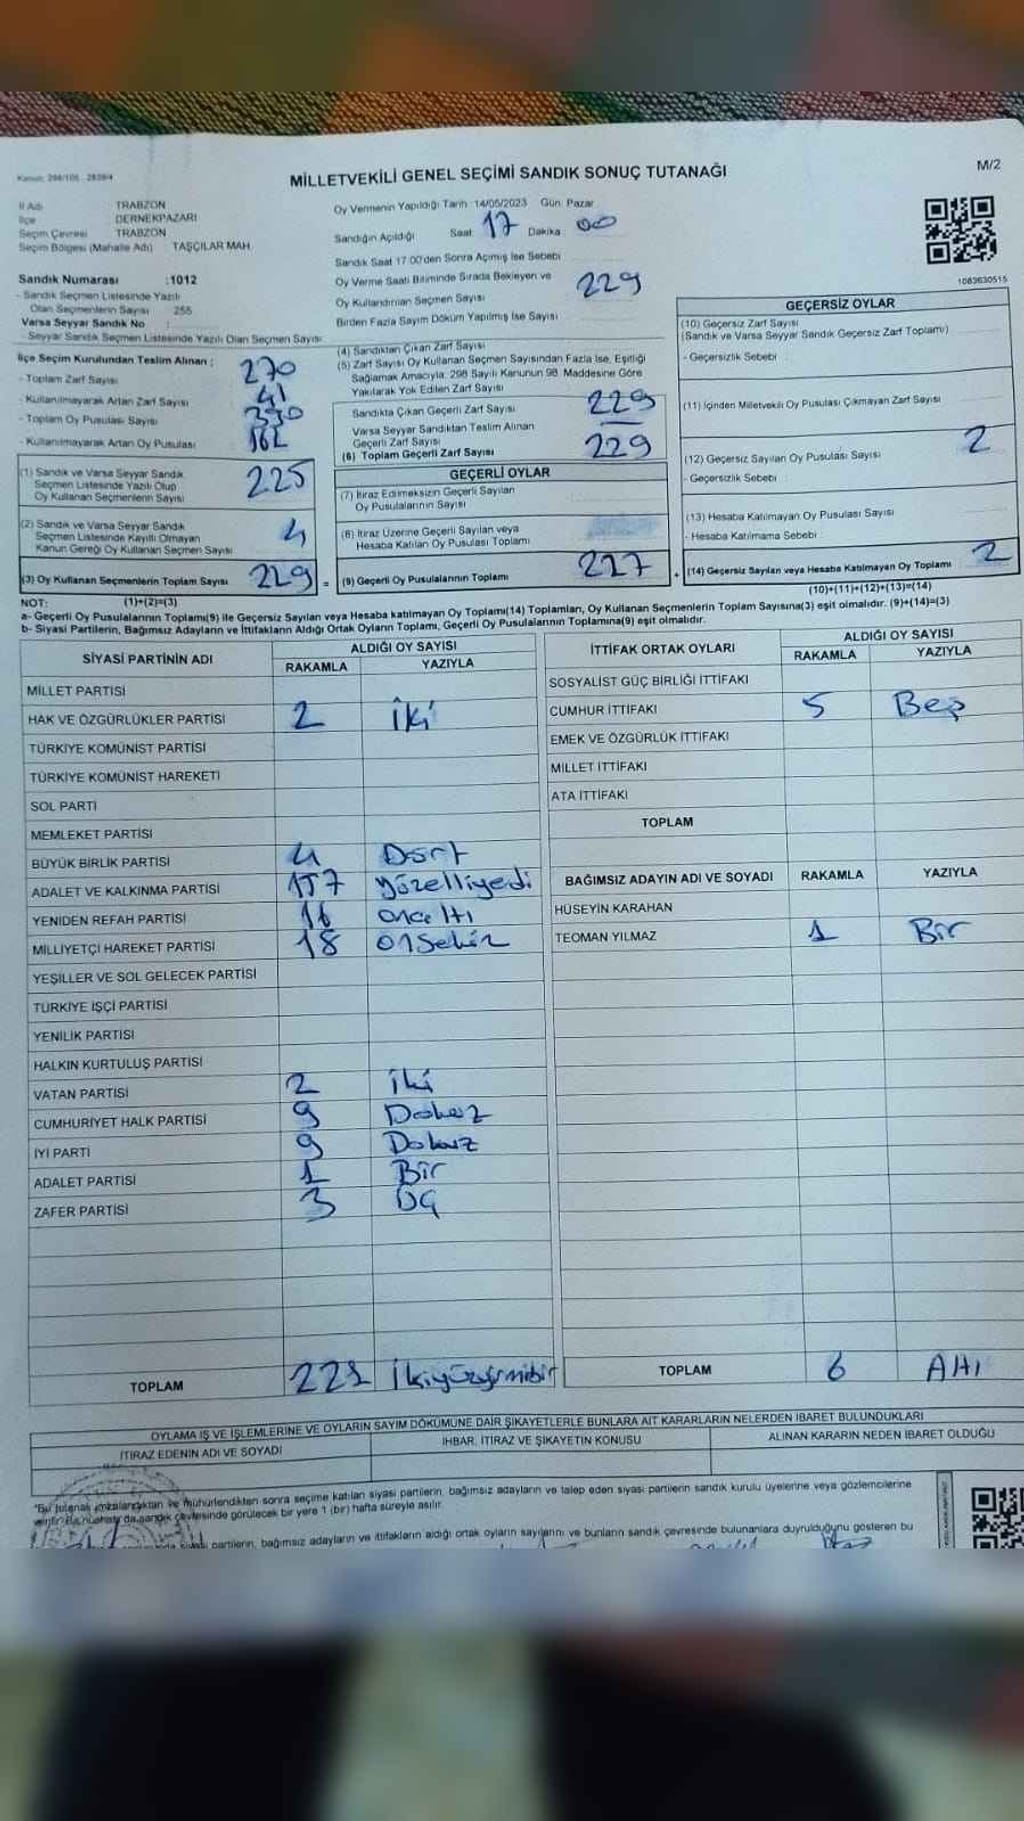 Kanun: 298/105 - 2839/4
MİLLETVEKİLİ GENEL SEÇİMİ SANDIK SONUÇ TUTANAĞI
M/2
İl Adı TRABZON
İlçe DERNEKPAZARI
Seçim Çevresi TRABZON
Seçim Bölgesi (Mahalle Adı) TAŞÇILAR MAH.
Sandık Numarası :1012
- Sandık Seçmen Listesinde Yazılı
Olan Seçmenlerin Sayısı 255
Varsa Seyyar Sandık No :
- Seyyar Sandık Seçmen Listesinde Yazılı Olan Seçmen Sayısı
Oy Vermenin Yapıldığı Tarih :14/05/2023 Gün: Pazar
Sandığın Açıldığı Saat: 17 Dakika 00
Sandık Saat 17:00'den Sonra Açılmış İse Sebebi
Oy Verme Saati Bitiminde Sırada Bekleyen ve
Oy Kullandırılan Seçmen Sayısı 229
Birden Fazla Sayım Döküm Yapılmış İse Sayısı
1083630515
İlçe Seçim Kurulundan Teslim Alınan ;
- Toplam Zarf Sayısı 270
- Kullanılmayarak Artan Zarf Sayısı 41
- Toplam Oy Pusulası Sayısı 330
- Kullanılmayarak Artan Oy Pusulası
(1) Sandık ve Varsa Seyyar Sandık
Seçmen Listesinde Yazılı Olup
Oy Kullanan Seçmenlerin Sayısı 225
(2) Sandık ve Varsa Seyyar Sandık
Seçmen Listesinde Kayıtlı Olmayan
Kanun Gereği Oy Kullanan Seçmen Sayısı 4
(3) Oy Kullanan Seçmenlerin Toplam Sayısı 229 =
(1)+(2)=(3)
(4) Sandıktan Çıkan Zarf Sayısı
(5) Zarf Sayısı Oy Kullanan Seçmen Sayısından Fazla İse, Eşitliği
Sağlamak Amacıyla; 298 Sayılı Kanunun 98. Maddesine Göre
Yakılarak Yok Edilen Zarf Sayısı
Sandıkta Çıkan Geçerli Zarf Sayısı 229
Varsa Seyyar Sandıktan Teslim Alınan
Geçerli Zarf Sayısı
(6) Toplam Geçerli Zarf Sayısı 229
GEÇERLİ OYLAR
(7) İtiraz Edilmeksizin Geçerli Sayılan
Oy Pusulalarının Sayısı
(8) İtiraz Üzerine Geçerli Sayılan veya
Hesaba Katılan Oy Pusulası Toplamı
(9) Geçerli Oy Pusulalarının Toplamı 227 +
GEÇERSİZ OYLAR
(10) Geçersiz Zarf Sayısı
(Sandık ve Varsa Seyyar Sandık Geçersiz Zarf Toplamı)
- Geçersizlik Sebebi :
(11) İçinden Milletvekili Oy Pusulası Çıkmayan Zarf Sayısı
(12) Geçersiz Sayılan Oy Pusulası Sayısı 2
- Geçersizlik Sebebi :
(13) Hesaba Katılmayan Oy Pusulası Sayısı
- Hesaba Katılmama Sebebi :
(14) Geçersiz Sayılan veya Hesaba Katılmayan Oy Toplamı 2
(10)+(11)+(12)+(13)=(14)
NOT:
a- Geçerli Oy Pusulalarının Toplamı(9) ile Geçersiz Sayılan veya Hesaba katılmayan Oy Toplamı(14) Toplamları, Oy Kullanan Seçmenlerin Toplam Sayısına(3) eşit olmalıdır. (9)+(14)=(3)
b- Siyasi Partilerin, Bağımsız Adayların ve İttifakların Aldığı Ortak Oyların Toplamı, Geçerli Oy Pusulalarının Toplamına(9) eşit olmalıdır.
SİYASİ PARTİNİN ADI ALDIĞI OY SAYISI
RAKAMLA YAZIYLA
MİLLET PARTİSİ
HAK VE ÖZGÜRLÜKLER PARTİSİ 2 İki
TÜRKİYE KOMÜNİST PARTİSİ
TÜRKİYE KOMÜNİST HAREKETİ
SOL PARTİ
MEMLEKET PARTİSİ
BÜYÜK BİRLİK PARTİSİ 4 Dört
ADALET VE KALKINMA PARTİSİ 157 yüzelliyedi
YENİDEN REFAH PARTİSİ 16 onaltı
MİLLİYETÇİ HAREKET PARTİSİ 18 onsekiz
YEŞİLLER VE SOL GELECEK PARTİSİ
TÜRKİYE İŞÇİ PARTİSİ
YENİLİK PARTİSİ
HALKIN KURTULUŞ PARTİSİ
VATAN PARTİSİ 2 iki
CUMHURİYET HALK PARTİSİ 9 Dokuz
İYİ PARTİ 9 Dokuz
ADALET PARTİSİ 1 Bir
ZAFER PARTİSİ 3 üç
TOPLAM 221 ikiyüzyirmibir
İTTİFAK ORTAK OYLARI ALDIĞI OY SAYISI
RAKAMLA YAZIYLA
SOSYALİST GÜÇ BİRLİĞİ İTTİFAKI
CUMHUR İTTİFAKI 5 Beş
EMEK VE ÖZGÜRLÜK İTTİFAKI
MİLLET İTTİFAKI
ATA İTTİFAKI
TOPLAM
BAĞIMSIZ ADAYIN ADI VE SOYADI RAKAMLA YAZIYLA
HÜSEYİN KARAHAN
TEOMAN YILMAZ 1 Bir
TOPLAM 6 Altı
OYLAMA İŞ VE İŞLEMLERİNE VE OYLARIN SAYIM DÖKÜMÜNE DAİR ŞİKAYETLERLE BUNLARA AİT KARARLARIN NELERDEN İBARET BULUNDUKLARI
İTİRAZ EDENİN ADI VE SOYADI İHBAR, İTİRAZ VE ŞİKAYETİN KONUSU ALINAN KARARIN NEDEN İBARET OLDUĞU
*Bu tutanak imzalandıktan ve mühürlendikten sonra seçime katılan siyasi partilerin, bağımsız adayların ve talep eden siyasi partilerin sandık kurulu üyelerine veya gözlemcilerine
verilir. Bu nüsha da sandık çevresinde görülecek bir yere 1 (bir) hafta süreyle asılır.
partilerin, bağımsız adayların ve ittifakların aldığı ortak oyların sayılarını ve bunların sandık çevresinde bulunanlara duyrulduğunu gösteren bu